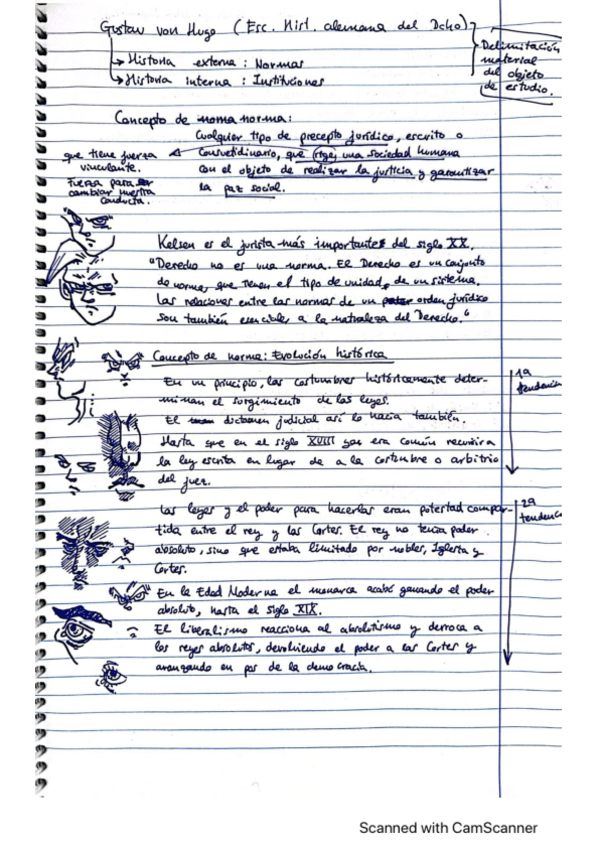 Gustav von Hugo (Esc. Hist. alemana del Dcho)
→ Historia externa: Normas
→ Historia interna: Instituciones
Delimitación
material
del objeto
de estudio.
Concepto de norma:
Cualquier tipo de precepto jurídico, escrito o
consuetidinario, que rige una sociedad humana
con el objeto de realizar la justicia y garantizar
la paz social.
que tiene fuerza
vinculante.
Fuerza para
cambiar nuestra
conducta.
Kelsen es el jurista más importante del siglo XX.
"Derecho no es una norma. El Derecho es un conjunto
de normas que tienen el tipo de unidad, de un sistema.
Las relaciones entre las normas de un orden jurídico
son también esenciales a la naturaleza del Derecho."
Concepto de norma: Evolución histórica
1ª
tendencia
En un principio, las costumbres históricamente deter-
minan el surgimiento de las leyes.
El dictamen judicial así lo hacía también.
Hasta que en el siglo XVIII era común recurrir a
la ley escrita en lugar de a la costumbre o arbitrio
del juez.
2ª
tendencia
Las leyes y el poder para hacerlas eran potestad compar-
tida entre el rey y las Cortes. El rey no tenía poder
absoluto, sino que estaba limitado por nobles, Iglesia y
Cortes.
En la Edad Moderna el monarca acabó ganando el poder
absoluto, hasta el siglo XIX.
El liberalismo reacciona al absolutismo y derroca a
los reyes absolutos, devolviendo el poder a las Cortes y
avanzando en pos de la democracia.
Scanned with CamScanner